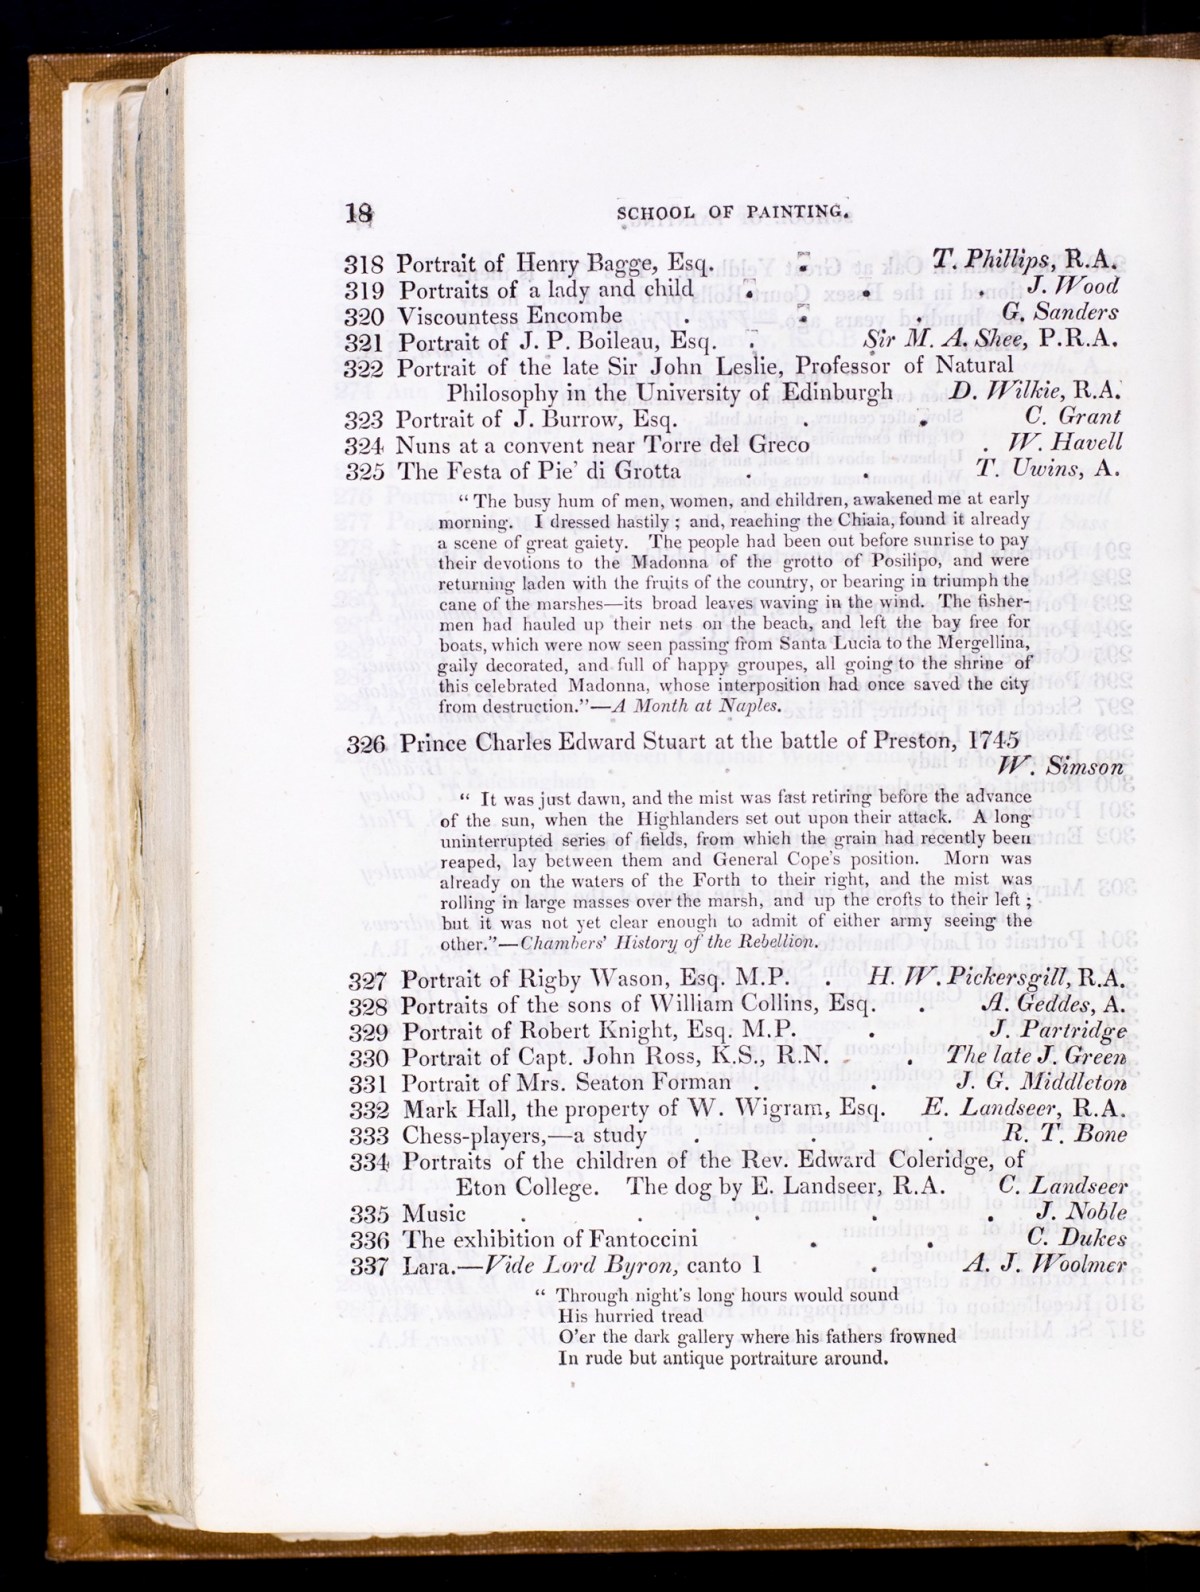 18 SCHOOL OF PAINTING.
318 Portrait of Henry Bagge, Esq. . T. Phillips, R.A.
319 Portraits of a lady and child . . . J. Wood
320 Viscountess Encombe . . . G. Sanders
321 Portrait of J. P. Boileau, Esq. . Sir M. A. Shee, P.R.A.
322 Portrait of the late Sir John Leslie, Professor of Natural
Philosophy in the University of Edinburgh D. Wilkie, R.A.
323 Portrait of J. Burrow, Esq. . . C. Grant
324 Nuns at a convent near Torre del Greco . W. Havell
325 The Festa of Pie' di Grotta . . T. Uwins, A.
" The busy hum of men, women, and children, awakened me at early
morning. I dressed hastily ; and, reaching the Chiaia, found it already
a scene of great gaiety. The people had been out before sunrise to pay
their devotions to the Madonna of the grotto of Posilipo, and were
returning laden with the fruits of the country, or bearing in triumph the
cane of the marshes—its broad leaves waving in the wind. The fisher-
men had hauled up their nets on the beach, and left the bay free for
boats, which were now seen passing from Santa Lucia to the Mergellina,
gaily decorated, and full of happy groupes, all going to the shrine of
this celebrated Madonna, whose interposition had once saved the city
from destruction."—A Month at Naples.
326 Prince Charles Edward Stuart at the battle of Preston, 1745
W. Simson
" It was just dawn, and the mist was fast retiring before the advance
of the sun, when the Highlanders set out upon their attack. A long
uninterrupted series of fields, from which the grain had recently been
reaped, lay between them and General Cope's position. Morn was
already on the waters of the Forth to their right, and the mist was
rolling in large masses over the marsh, and up the crofts to their left ;
but it was not yet clear enough to admit of either army seeing the
other."—Chambers' History of the Rebellion.
327 Portrait of Rigby Wason, Esq. M.P. . H. W. Pickersgill, R.A.
328 Portraits of the sons of William Collins, Esq. . A. Geddes, A.
329 Portrait of Robert Knight, Esq. M.P. . J. Partridge
330 Portrait of Capt. John Ross, K.S., R.N. . The late J. Green
331 Portrait of Mrs. Seaton Forman . . J. G. Middleton
332 Mark Hall, the property of W. Wigram, Esq. E. Landseer, R.A.
333 Chess-players,—a study . . . R. T. Bone
334 Portraits of the children of the Rev. Edward Coleridge, of
Eton College. The dog by E. Landseer, R.A. C. Landseer
335 Music . . . . . J. Noble
336 The exhibition of Fantoccini . . C. Dukes
337 Lara.—Vide Lord Byron, canto 1 . A. J. Woolmer
" Through night's long hours would sound
His hurried tread
O'er the dark gallery where his fathers frowned
In rude but antique portraiture around.